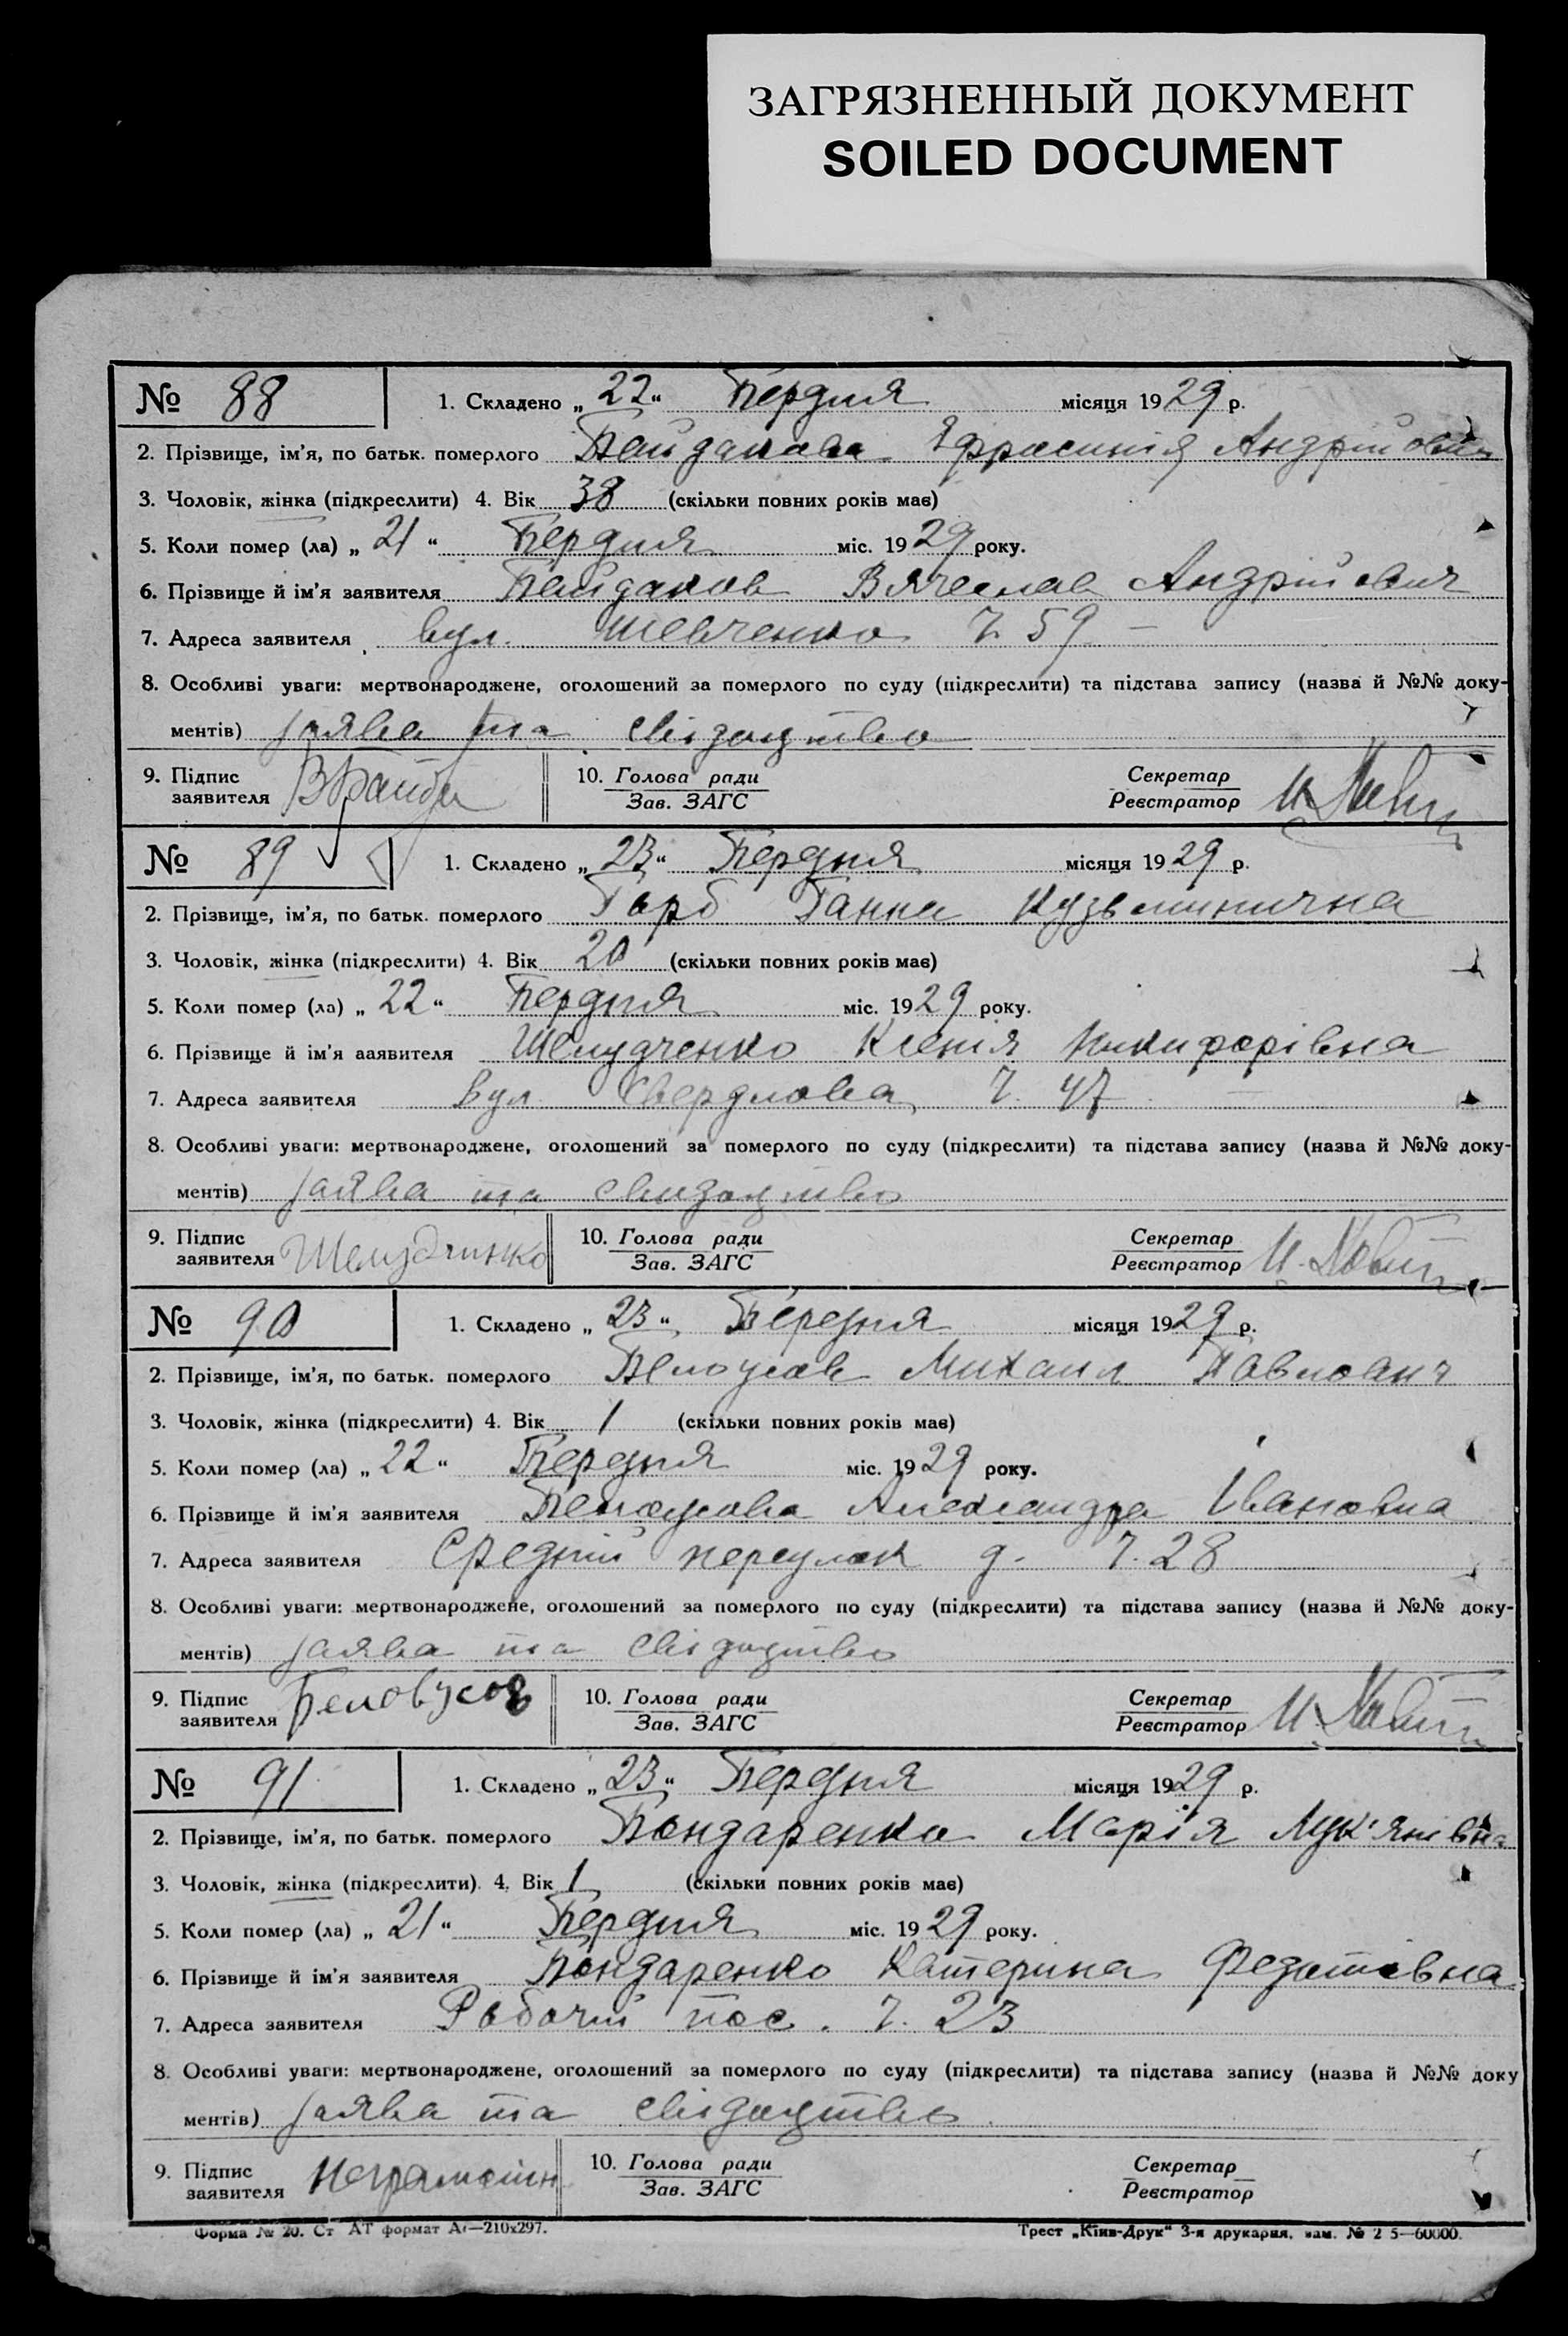 ЗАГРЯЗНЕННЫЙ ДОКУМЕНТ
SOILED DOCUMENT
№ 88 1. Складено „ 22 “ Бердня місяця 1929 р.
2. Прізвище, ім'я, по батьк. померлого Байдакова Ефросинія Андрійовна
3. Чоловік, жінка (підкреслити) 4. Вік 38 (скільки повних років має)
5. Коли помер (ла) „ 21 “ Бердня міс. 1929 року.
6. Прізвище й ім'я заявителя Байдаков Вячеслав Андрійович
7. Адреса заявителя вул. Шевченко Ч. 59 —
8. Особливі уваги: мертвонароджене, оголошений за померлого по суду (підкреслити) та підстава запису (назва й №№ доку-
ментів) заява та свідоцтво
9. Підпис заявителя 10. Голова ради Зав. ЗАГС Секретар Реєстратор
№ 89 1. Складено „ 23 “ Бердня місяця 1929 р.
2. Прізвище, ім'я, по батьк. померлого Горб Ганна Кузьминична
3. Чоловік, жінка (підкреслити) 4. Вік 20 (скільки повних років має)
5. Коли помер (ла) „ 22 “ Бердня міс. 1929 року.
6. Прізвище й ім'я заявителя Шелудченко Ксенія Никифорівна
7. Адреса заявителя вул. Свердлова Ч. 47 —
8. Особливі уваги: мертвонароджене, оголошений за померлого по суду (підкреслити) та підстава запису (назва й №№ доку-
ментів) заява та свидоцтво
9. Підпис заявителя Шелудчинко 10. Голова ради Зав. ЗАГС Секретар Реєстратор
№ 90 1. Складено „ 23 “ Березня місяця 1929 р.
2. Прізвище, ім'я, по батьк. померлого Белоусов Михаил Павлович
3. Чоловік, жінка (підкреслити) 4. Вік 1 (скільки повних років має)
5. Коли помер (ла) „ 22 “ Березня міс. 1929 року.
6. Прізвище й ім'я заявителя Белоусова Александра Івановна
7. Адреса заявителя Средний переулок д. Ч. 28
8. Особливі уваги: мертвонароджене, оголошений за померлого по суду (підкреслити) та підстава запису (назва й №№ доку-
ментів) заява та свідоцтво
9. Підпис заявителя Беловусов 10. Голова ради Зав. ЗАГС Секретар Реєстратор
№ 91 1. Складено „ 23 “ Березня місяця 1929 р.
2. Прізвище, ім'я, по батьк. померлого Бондаренко Марія Лук'янівна
3. Чоловік, жінка (підкреслити) 4. Вік 1 (скільки повних років має)
5. Коли помер (ла) „ 21 “ Бердня міс. 1929 року.
6. Прізвище й ім'я заявителя Бондаренко Катерина Федотівна
7. Адреса заявителя Рабочий пос. Ч. 23
8. Особливі уваги: мертвонароджене, оголошений за померлого по суду (підкреслити) та підстава запису (назва й №№ доку
ментів) заява та свідоцтво
9. Підпис заявителя Неграмотн 10. Голова ради Зав. ЗАГС Секретар Реєстратор
Форма № 20. Ст АТ формат А4—210x297. Трест „Київ-Друк“ 3-я друкарня, зам. № 2 5—60000.